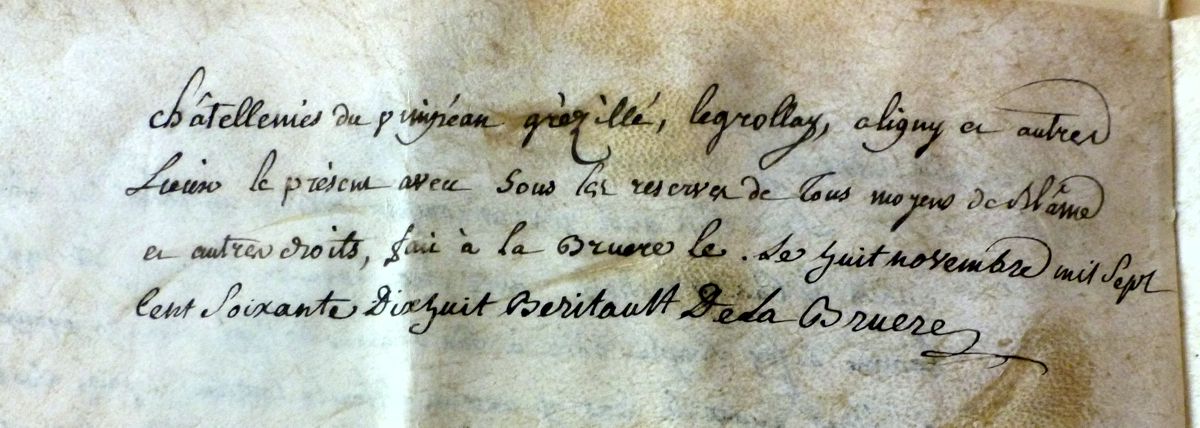 châtellenies du pimpéan grèzillé, legrollay, aligny et autres
Lieux le présent aveu Sous les reserves de Tous moyens de Blâme
et autres droits, fait à la Bruere le . Le huit novembre mil Sept
Cent Soixante Dixhuit Beritault De La Bruere